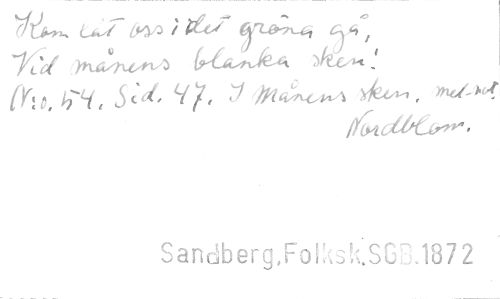 Kom låt oss i det gröna gå,
Vid månens blanka sken!
N:o. 54. Sid. 47. I Månens sken. mel-not.
Nordblom.
Sandberg,Folksk.SGB.1872